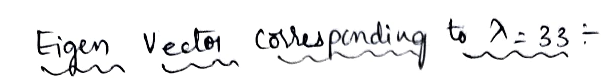 Eigen Vector corresponding to λ = 33 :-